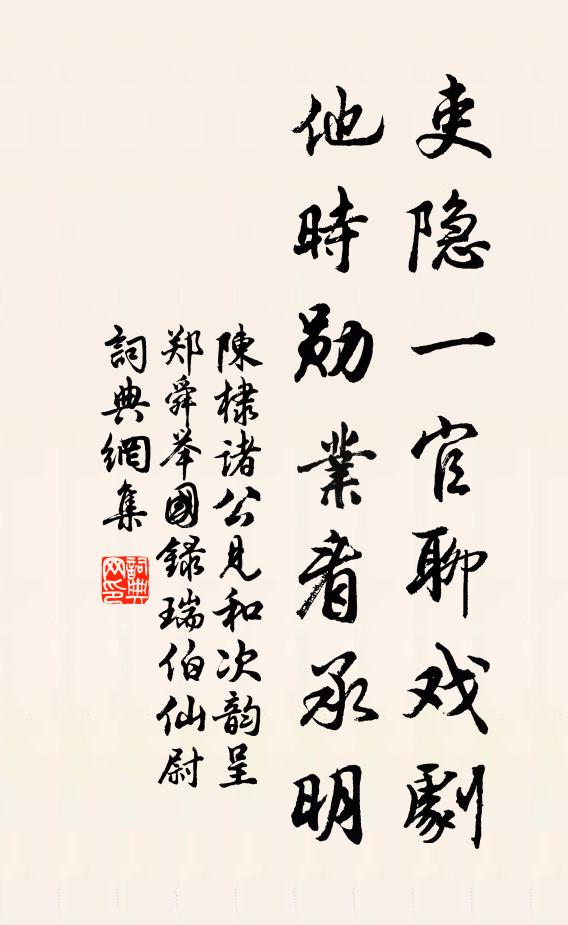 吏隐一官聊戏劇
他時勋業看承明
陳棣诸公見和次韵呈
郑舜举國録瑞伯仙尉
詞典網集
詞典
网印